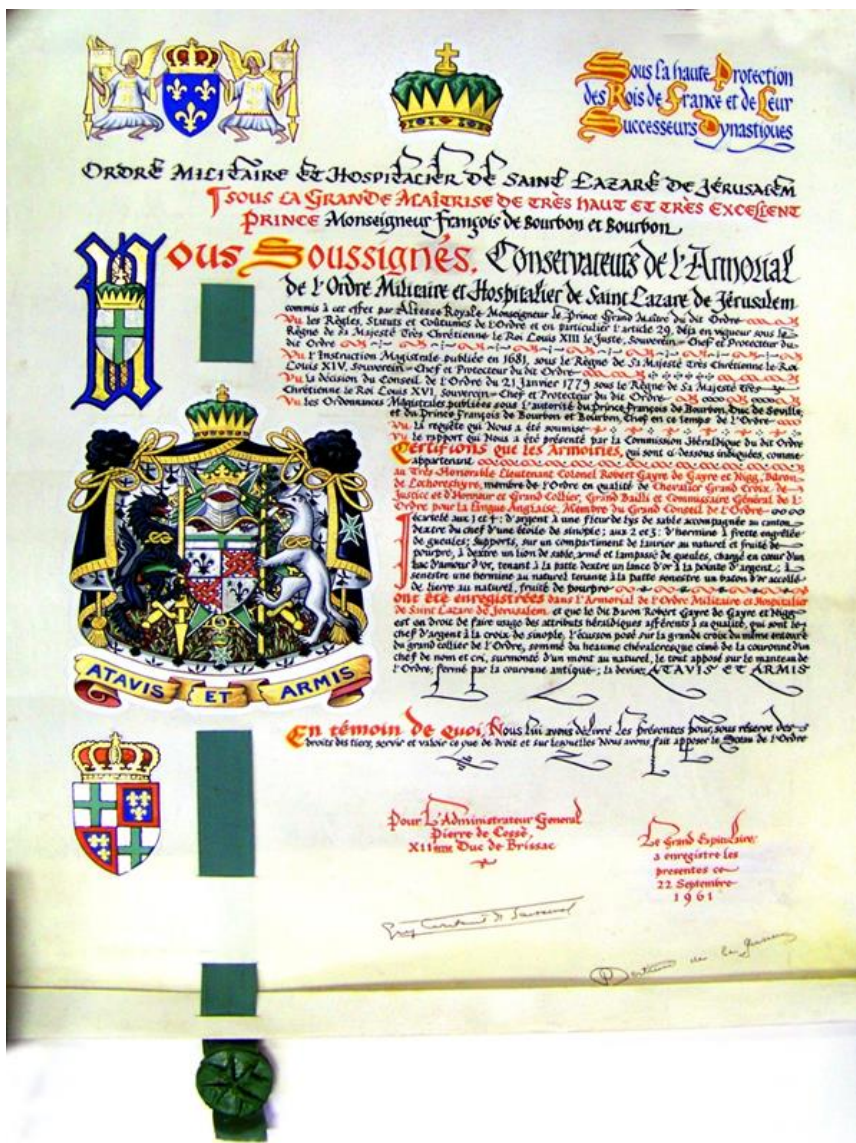 Sous la haute Protection
des Rois de France et de Leur
Successeurs Dynastiques
ORDRE MILITAIRE ET HOSPITALIER DE SAINT LAZARE DE JÉRUSALEM
SOUS LA GRANDE MAÎTRISE DE TRÈS HAUT ET TRÈS EXCELLENT
PRINCE Monseigneur François de Bourbon et Bourbon
Nous Soussignés, Conservateurs de l'Armorial
de l'Ordre Militaire et Hospitalier de Saint Lazare de Jérusalem
commis à cet effet par Altesse Royale Monseigneur le Prince Grand Maître du dit Ordre
Vu les Règles, Statuts et Coûtumes de l'Ordre et en particulier l'article 29, déjà en vigueur sous le
Règne de sa Majesté Très Chrétienne le Roi Louis XIII le Juste, Souverein-Chef et Protecteur du
dit Ordre
Vu l'Instruction Magistrale publiée en 1681, sous le Règne de Sa Majesté Très Chrétienne le Roi
Louis XIV, Souverein-Chef et Protecteur du dit Ordre
Vu la décision du Conseil de l'Ordre du 21 Janvier 1779 sous le Règne de Sa Majesté Très
Chrétienne le Roi Louis XVI, souverein-Chef et Protecteur du dit Ordre
Vu les Ordonnances Magistrales publiées sous l'autorité du Prince François de Bourbon, Duc de Seville,
et du Prince François de Bourbon et Bourbon, Chef en ce temps de l'Ordre
Vu la requête qui Nous a été soumise
Vu le rapport qui Nous a été présenté par la Commission Héraldique du dit Ordre
Certifions que les Armoiries, qui sont ci-dessous indiquées, comme
appartenant
au Très Honorable Lieutenant Colonel Robert Gayre de Gayre et Nigg, Baron
de Lochoreshyre, membre de l'Ordre en qualité de Chevalier Grand Croix de
Justice et d'Honneur et Grand Collier, Grand Bailli et Commissaire Général de l'
Ordre pour la Langue Anglaise, Membre du Grand Conseil de l'Ordre
Ecartelé aux 1 et 4: d'argent à une fleur de lys de sable accompagnée au canton
dextre du chef d'une étoile de sinople; aux 2 et 3: d'hermine à frette engrêlée
de gueules; supports, sur un compartiment de laurier au naturel et fruité de
pourpre, à dextre un lion de sable, armé et lampassé de gueules, chargé en cœur d'un
lac d'amour d'or, tenant à la patte dextre un lance d'or à la pointe d'argent; à
senestre une hermine au naturel tenante à la patte senestre un baton d'or accollé
de lierre au naturel, fruité de pourpre
ont été enregistrées dans l'Armorial de l'Ordre Militaire et Hospitalier
de Saint Lazare de Jerusalem et que le dit Baron Robert Gayre de Gayre et Nigg
est en droit de faire usage des attributs héraldiques afférents à sa qualité, qui sont le
chef d'argent à la croix de sinople, l'écusson posé sur la grande croix du même entouré
du grand collier de l'Ordre, sommé du heaume chevaleresque cimé de la couronne d'un
chef de nom et cri, surmonté d'un mont au naturel, le tout apposé sur le manteau de
l'Ordre, fermé par la couronne antique; la devise, ATAVIS ET ARMIS
ATAVIS ET ARMIS
En témoin de quoi, Nous Lui avons délivré les présentes pour, sous réserve des
droits des tiers, servir et valoir ce que de droit et sur lesquelles Nous avons fait apposer le Sceau de l'Ordre
Pour L'Administrateur General
Pierre de Cossè,
XIIème Duc de Brissac
Le Grand
a enregistre les
presentes ce
22 Septembre
1961